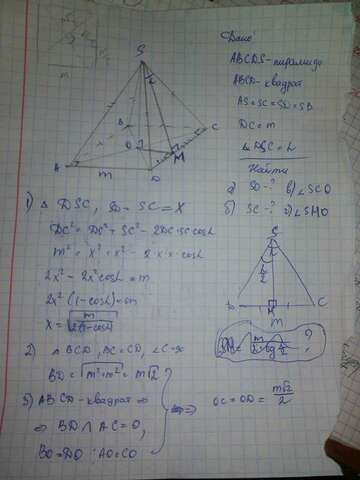 S
A
B
C
D
O
M
m
L
Дано
ABCDS - пирамида
ABCD - квадрат
AS=SC=SD=SB
DC=m
∠DSC=L
Найти
а) SO-? в) ∠SCO
б) SC-? г) ∠SMO
1) △ DSC, SD = SC = X
DC² = DS² + SC² - 2DC·SC cosL
m² = x² + x² - 2·x·x·cosL
2x² - 2x² cosL = m
2x² (1-cosL) = m
S
L/2
M
C
m
2) △ BCD, BC=CD, ∠C=90
BD = √m²+m² = m√2
3) ABCD - квадрат ⇒
⇒ BD ∩ AC = O,
BO=DO; AO=CO
OC=OD= m√2/2